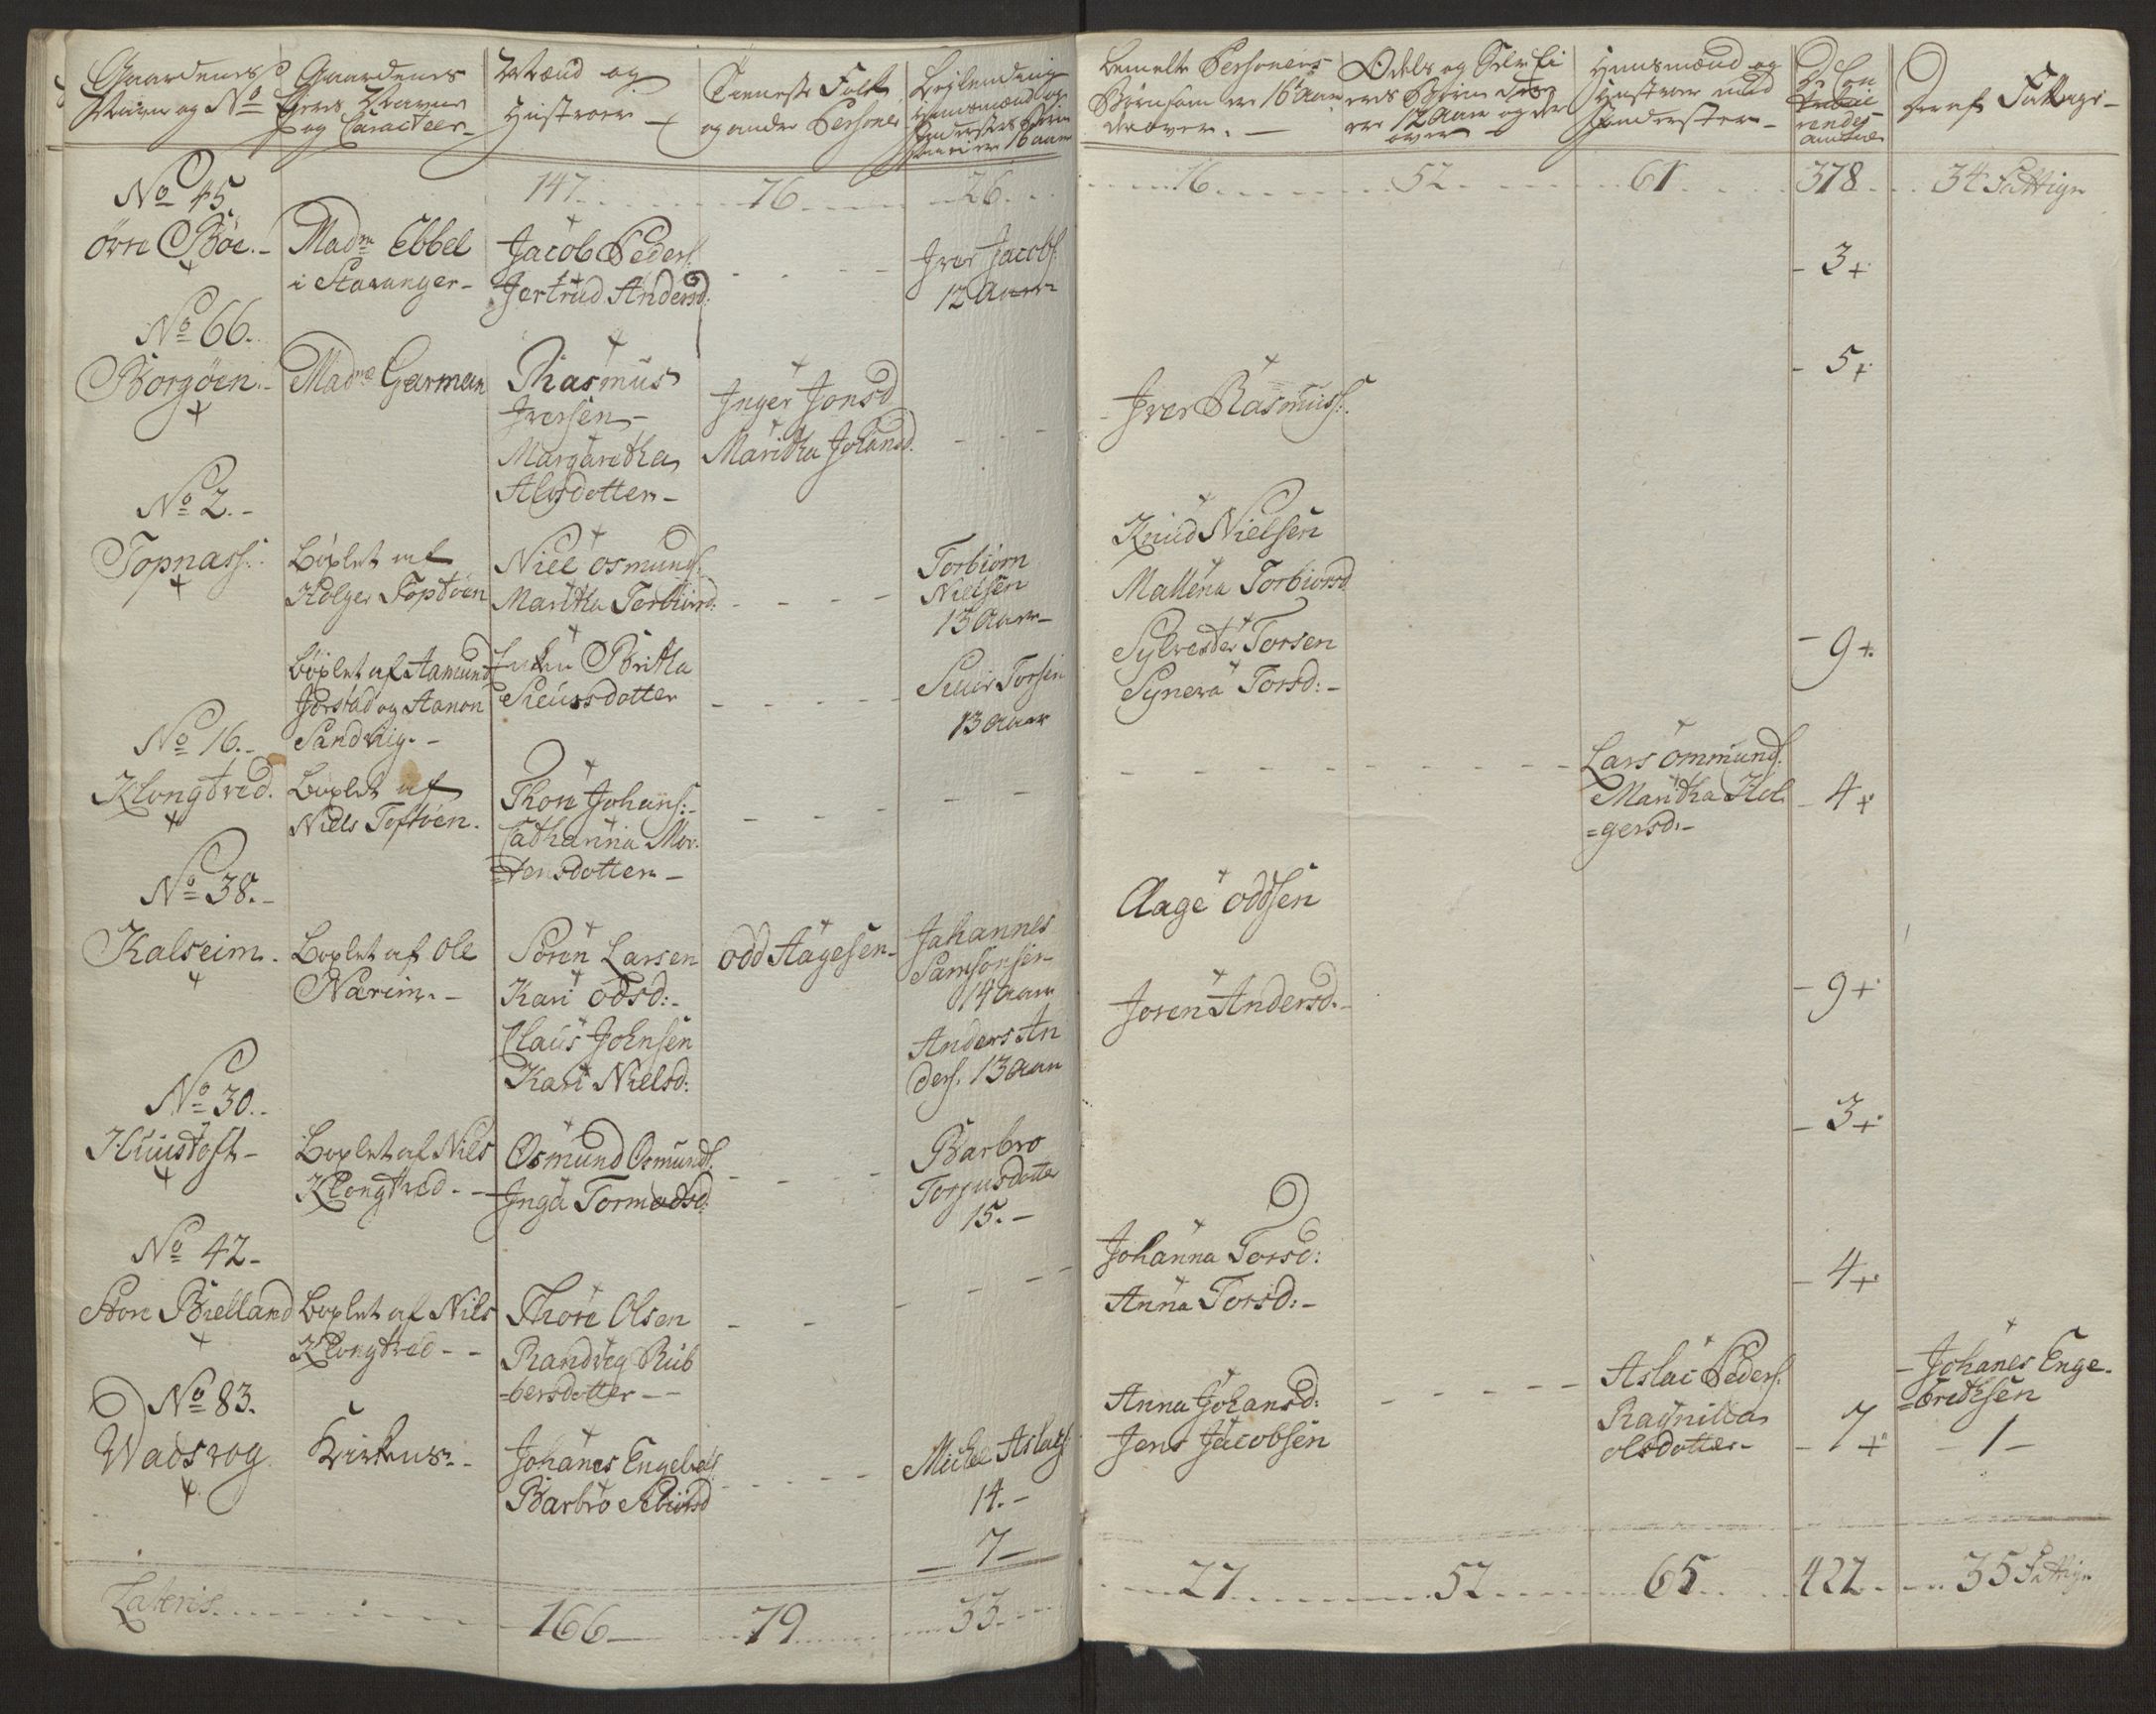 Gaardenes
Navn og No
Gaardenes
Eyers Navne
og Caracteer
Mænd og
Hustroer
Tieneste Folk
og andre Personer
Bemelte Personers
Børn som er 16 Aar
derover.
Odels og
12 Aar og der
over
Huusmænd og
Hustroer med
Deraf Fattige
147 76 26 16 52 61 378 34 Fattige
No 45
øvre Böe.
Madm Ebbel
i Stavanger
Jacob Peders:
Gertrud Andersd:
Iver Jacobs:
12 Aar
3
No 66.
Borgöen.
Madme Garman
Rasmus
Iversen
Margaretha
Alvsdotter
Inger Jonsd
Maritha Johansd.
Iver Rasmuss:
5
No 2.
Topnass:
Böxlet af
Holger Toptöen
Niels osmunds:
Maritha Torbiörnsd:
Torbiörn
Nielsen
13 Aar
Knud Nielsen
Mallena Torbiorsd
Böxlet af Aamund
Jörstad og Aanon
Sandvig.
Enken Britha
Sieursdotter
Siur Torsen
13 Aar
Sylvester Torsen
Synera Torsd:
9
No 16.
Klongtved.
Böxlet af
Niels Toftöen.
Thore Johans:
Cathanna Mor
=tensdotter
Lars ommunds:
Maritha Hol
=gersd:
4
No 38.
Kalseim.
Böxlet af Ole
Nærim.
Sören Larsen
Kari odsd:
Claus Johnsen
Kari Nielsd:
odd Aagesen
Johannes
Samsonsen
14 Aar
Anders An
ders. 13 Aar
Aage oddsen
Joren Andersd.
9
No 30.
Huustoft
Böxlet af Nils
Klongtved
Osmund Osmunds:
Inga Tormodsd:
Barbro
Torgusdotter
15.
3
No 42
Store Bielland
Böxlet af Nils
Klongtved
Thore Olsen
Randvig Rub
=bersdotter
Johanna Torsd:
Anna Torsd:
4
No 83.
Wadsvog
Kirkens
Johanes Engebrets:
Barbro Sebiörnsd
Michel Aslacs:
14.
Anna Johansd:
Jens Jacobsen
Aslac Peders:
Raynilla
olsdotter
7
Johanes Enge
=brethsen
1
7
Lateris 166 79 33 27 52 65 422 35 Fattige